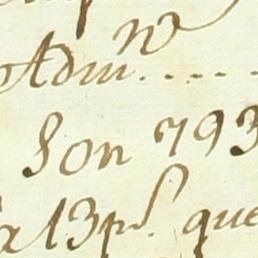 Admn. . . . . .
Son 793
a 13 ps. que